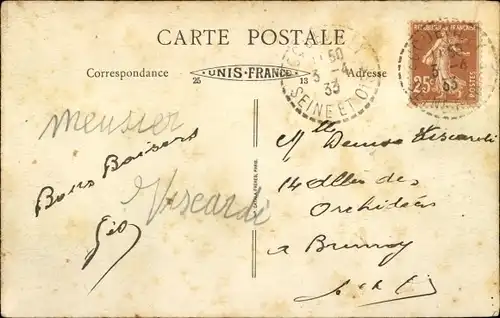 CARTE POSTALE
Correspondance
UNIS-FRANCE
25
13
Adresse
50
3-4
33
SEINE ET O
25c
POSTES
Meusier
Bons Baisers
Viscardi
Géo
Mlle Denise Viscardi
14 Allée des
Orchidées
a Brunoy
S et O